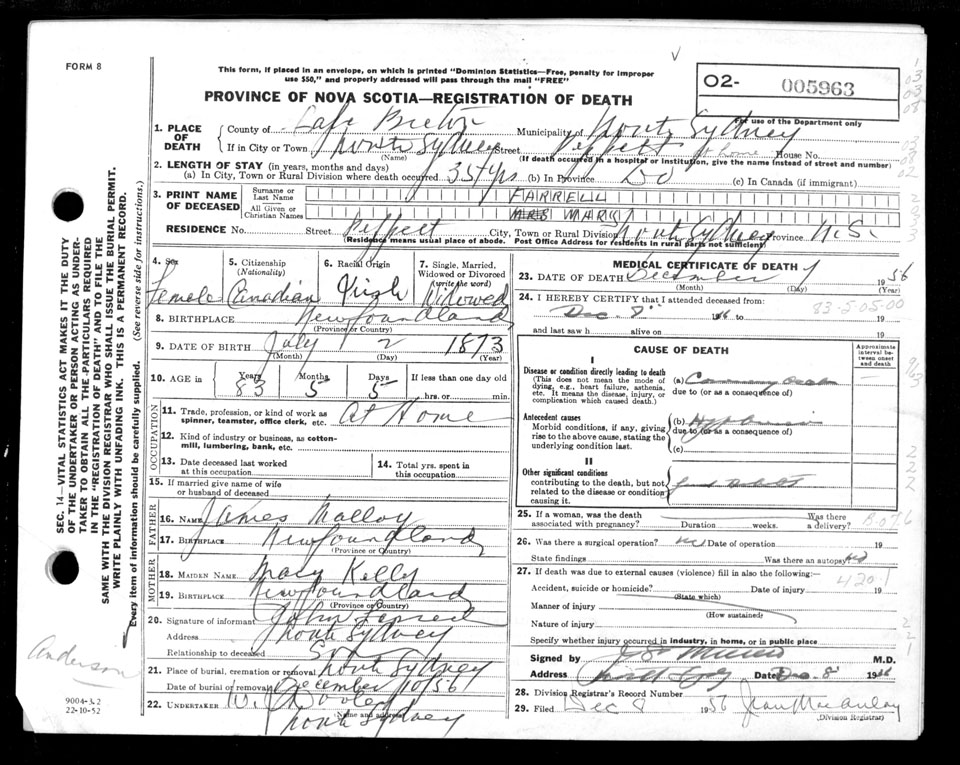 FORM 8
This form, if placed in an envelope, on which is printed "Dominion Statistics—Free, penalty for improper
use $50," and properly addressed will pass through the mail "FREE"
PROVINCE OF NOVA SCOTIA—REGISTRATION OF DEATH
O2- 005963
For use of the Department only
1. PLACE OF DEATH
County of Cape Breton Municipality of North Sydney
If in City or Town North Sydney Street Peppett at home House No.
(Name) (If death occurred in a hospital or institution, give the name instead of street and number)
2. LENGTH OF STAY (in years, months and days)
(a) In City, Town or Rural Division where death occurred 35 yrs (b) In Province Do (c) In Canada (if immigrant)
3. PRINT NAME OF DECEASED
Surname or Last Name FARRELL
All Given or Christian Names MRS MARY
RESIDENCE No. Street Peppett City, Town or Rural Division North Sydney Province N.S.
(Residence means usual place of abode. Post Office Address for residents in rural parts not sufficient)
4. Sex Female
5. Citizenship (Nationality) Canadian
6. Racial Origin Irish
7. Single, Married, Widowed or Divorced (write the word) Widowed
8. BIRTHPLACE Newfoundland
(Province or Country)
9. DATE OF BIRTH July 2 1873
(Month) (Day) (Year)
10. AGE in Years 83 Months 5 Days 5 If less than one day old
hrs. or min.
OCCUPATION
11. Trade, profession, or kind of work as spinner, teamster, office clerk, etc. At Home
12. Kind of industry or business, as cotton-mill, lumbering, bank, etc.
13. Date deceased last worked at this occupation
14. Total yrs. spent in this occupation
15. If married give name of wife or husband of deceased
FATHER
16. NAME James Malloy
17. BIRTHPLACE Newfoundland
(Province or Country)
MOTHER
18. MAIDEN NAME Mary Kelly
19. BIRTHPLACE Newfoundland
(Province or Country)
20. Signature of informant John
Address North Sydney
Relationship to deceased Son
21. Place of burial, cremation or removal North Sydney
Date of burial or removal December 10/56
22. UNDERTAKER W.
North Sydney
Name and address
MEDICAL CERTIFICATE OF DEATH
23. DATE OF DEATH December 7 1956
(Month) (Day) (Year)
24. I HEREBY CERTIFY that I attended deceased from 83-5-05-00
Dec. 8 1956 to 19
and last saw h alive on 19
CAUSE OF DEATH
Approximate interval between onset and death
I
Disease or condition directly leading to death
(This does not mean the mode of dying, e.g., heart failure, asthma, etc. It means the disease, injury, or complication which caused death.)
(a) Coronary
due to (or as a consequence of)
Antecedent causes
Morbid conditions, if any, giving rise to the above cause, stating the underlying condition last.
(b)
due to (or as a consequence of)
(c)
II
Other significant conditions
contributing to the death, but not related to the disease or condition causing it.
25. If a woman, was the death associated with pregnancy? Duration weeks. Was there a delivery?
26. Was there a surgical operation? No Date of operation 19
State findings Was there an autopsy? No
27. If death was due to external causes (violence) fill in also the following:—
420.1
Accident, suicide or homicide? Date of injury 19
(State which)
Manner of injury
(How sustained)
Nature of injury
Specify whether injury occurred in industry, in home, or in public place
Signed by M.D.
Address Date Dec. 8 1956
28. Division Registrar's Record Number
29. Filed Dec 8 1956 Jean MacAulay
(Division Registrar)
SEC. 14—VITAL STATISTICS ACT MAKES IT THE DUTY
OF THE UNDERTAKER OR PERSON ACTING AS UNDER-
TAKER TO OBTAIN ALL THE PARTICULARS REQUIRED
IN THE "REGISTRATION OF DEATH" AND TO FILE THE
SAME WITH THE DIVISION REGISTRAR WHO SHALL ISSUE THE BURIAL PERMIT.
WRITE PLAINLY WITH UNFADING INK. THIS IS A PERMANENT RECORD.
Every item of information should be carefully supplied. (See reverse side for instructions.)
Anderson
9004-3.2
22-10-52